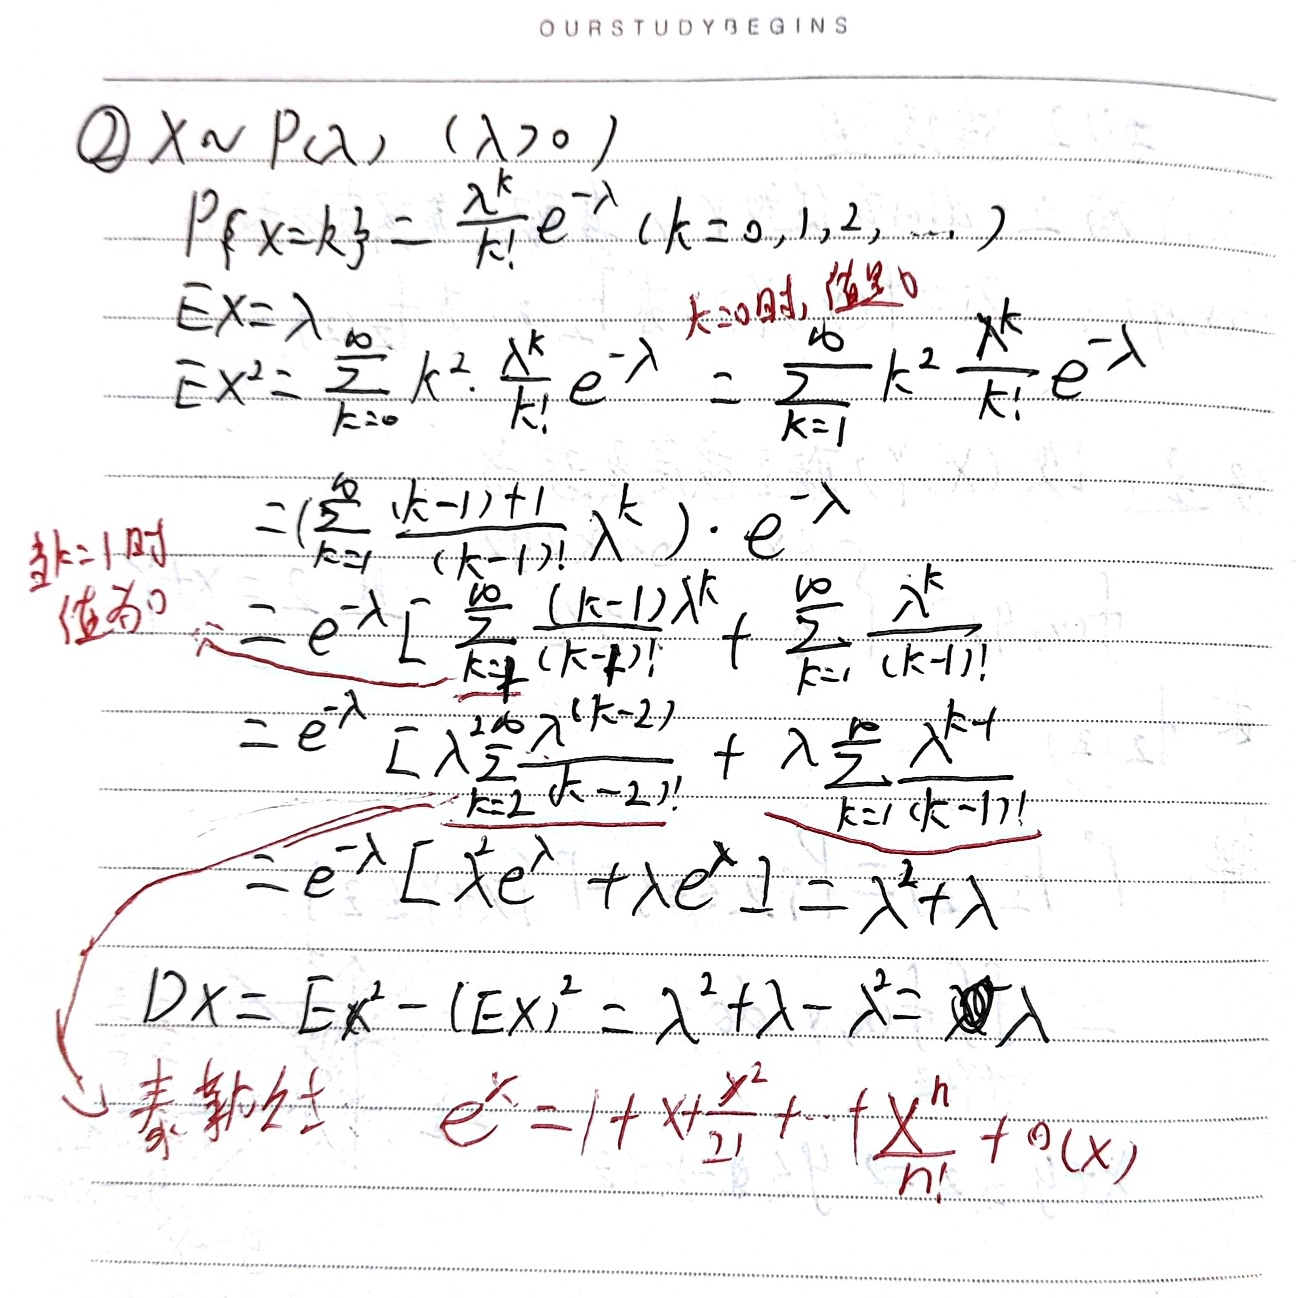 OURSTUDYBEGINS
② X ~ P(λ) (λ>0)
P{X=k} = \frac{λ^k}{k!} e^{-λ} (k=0,1,2,…)
EX=λ
k=0时,值是0
EX² = \sum_{k=0}^{∞} k² · \frac{λ^k}{k!} e^{-λ} = \sum_{k=1}^{∞} k² \frac{λ^k}{k!} e^{-λ}
= (\sum_{k=1}^{∞} \frac{(k-1)+1}{(k-1)!} λ^k) · e^{-λ}
当k=1时
值为0
= e^{-λ} [ \sum_{k=1}^{∞} \frac{(k-1)λ^k}{(k-1)!} + \sum_{k=1}^{∞} \frac{λ^k}{(k-1)!}
= e^{-λ} [ λ² \sum_{k=2}^{∞} \frac{λ^{(k-2)}}{(k-2)!} + λ \sum_{k=1}^{∞} \frac{λ^{k-1}}{(k-1)!}
= e^{-λ} [ λ²e^λ + λe^λ ] = λ²+λ
DX = EX² - (EX)² = λ²+λ-λ² = λ
泰勒公式 e^x = 1+x+\frac{x²}{2!}+…+\frac{x^n}{n!}+o(x)